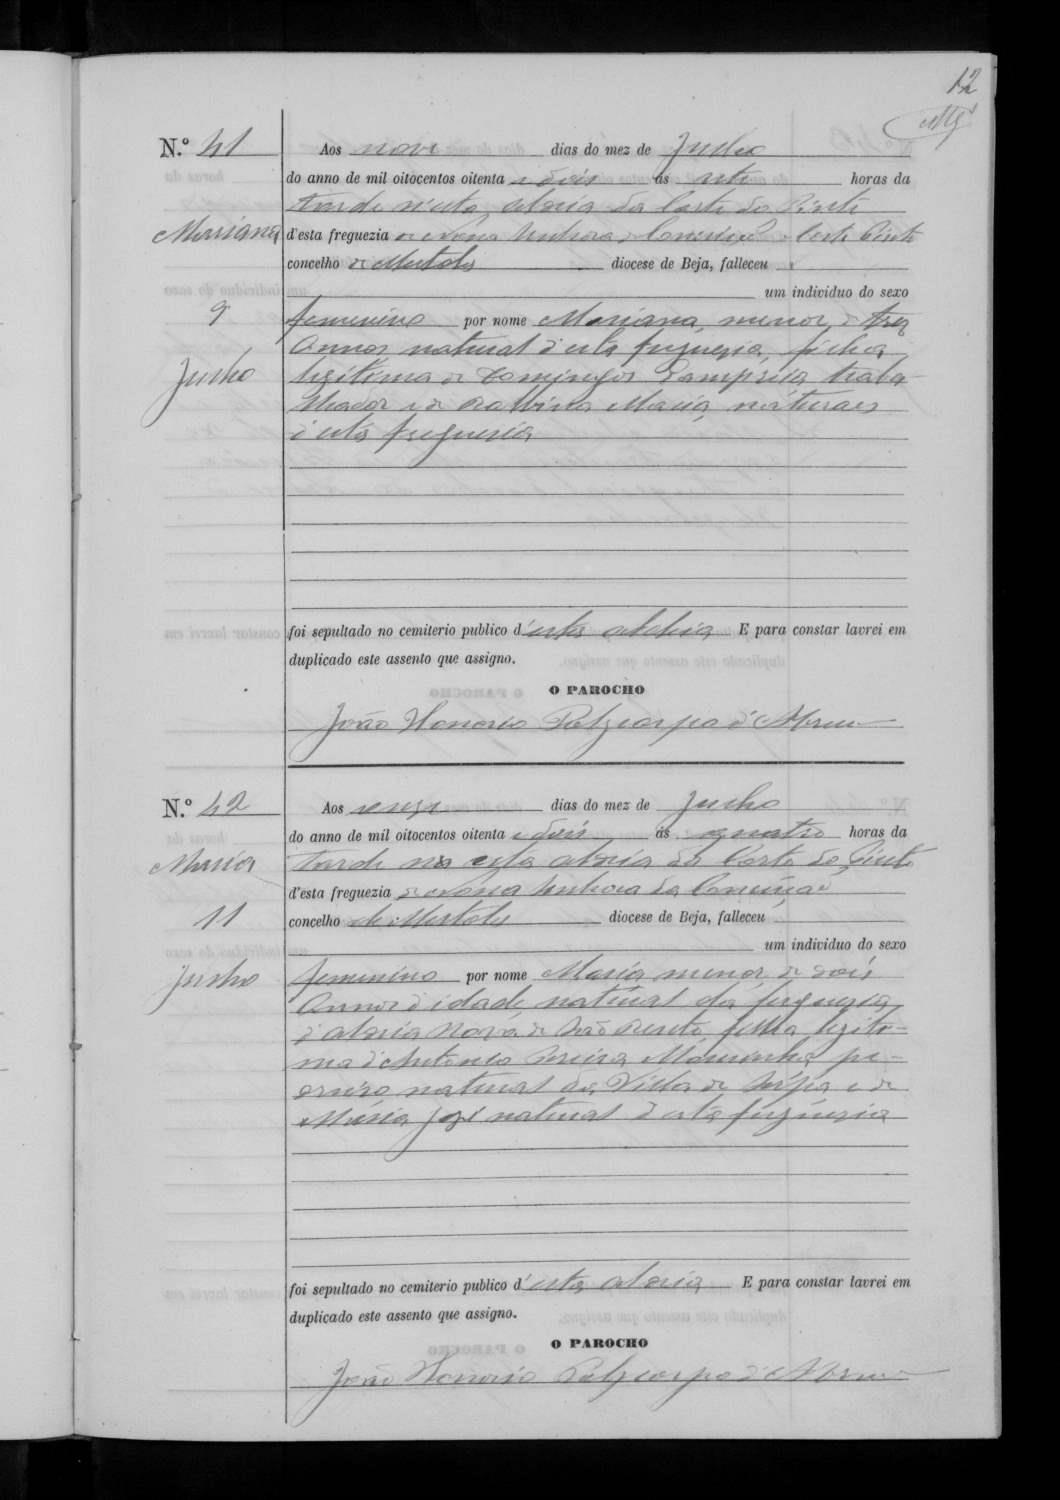 12
N.º 41
Aos nove dias do mez de Junho
do anno de mil oitocentos oitenta e dois ás sete horas da
tarde n'esta aldeia da Corte do Pinto
Marianna d'esta freguezia de Nossa Senhora da Conceição Corte Pinto
concelho de Mertola diocese de Beja, falleceu
um individuo do sexo
9 femenino por nome Mariana, menor, de trez
annos, natural d'esta freguezia, filha
Junho legitima de Domingos traba-
lhador e de Balbina Maria, naturaes
d'esta freguezia
foi sepultado no cemiterio publico d'esta aldeia E para constar lavrei em
duplicado este assento que assigno.
O PAROCHO
João Honorio Polycarpo d'Abreu
N.º 42
Aos onze dias do mez de Junho
do anno de mil oitocentos oitenta e dois ás quatro horas da
Maria tarde na esta aldeia da Corte do Pinto
d'esta freguezia de Nossa Senhora da Conceição
11 concelho de Mertola diocese de Beja, falleceu
um individuo do sexo
Junho femenino por nome Maria menor, de dois
annos d'idade, natural da freguezia
d'aldeia Nova de São Bento, filha legiti-
ma d'Antonio Pereira
natural da Villa de Serpa e de
Maria José natural d'esta freguezia
foi sepultado no cemiterio publico d'esta aldeia E para constar lavrei em
duplicado este assento que assigno.
O PAROCHO
João Honorio Polycarpo d'Abreu